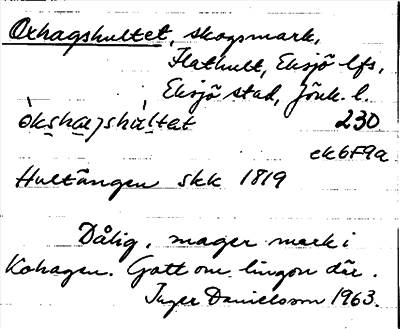 Oxhagshultet, skogsmark,
Flathult, Eksjö lfs,
Eksjö stad, Jönk. l.
òkshaɲshúltat 230
ek6F9a
Hultängen skk 1819
Dålig, mager mark i
Kohagen. Gott om lingon där.
Inger Danielsson 1963.